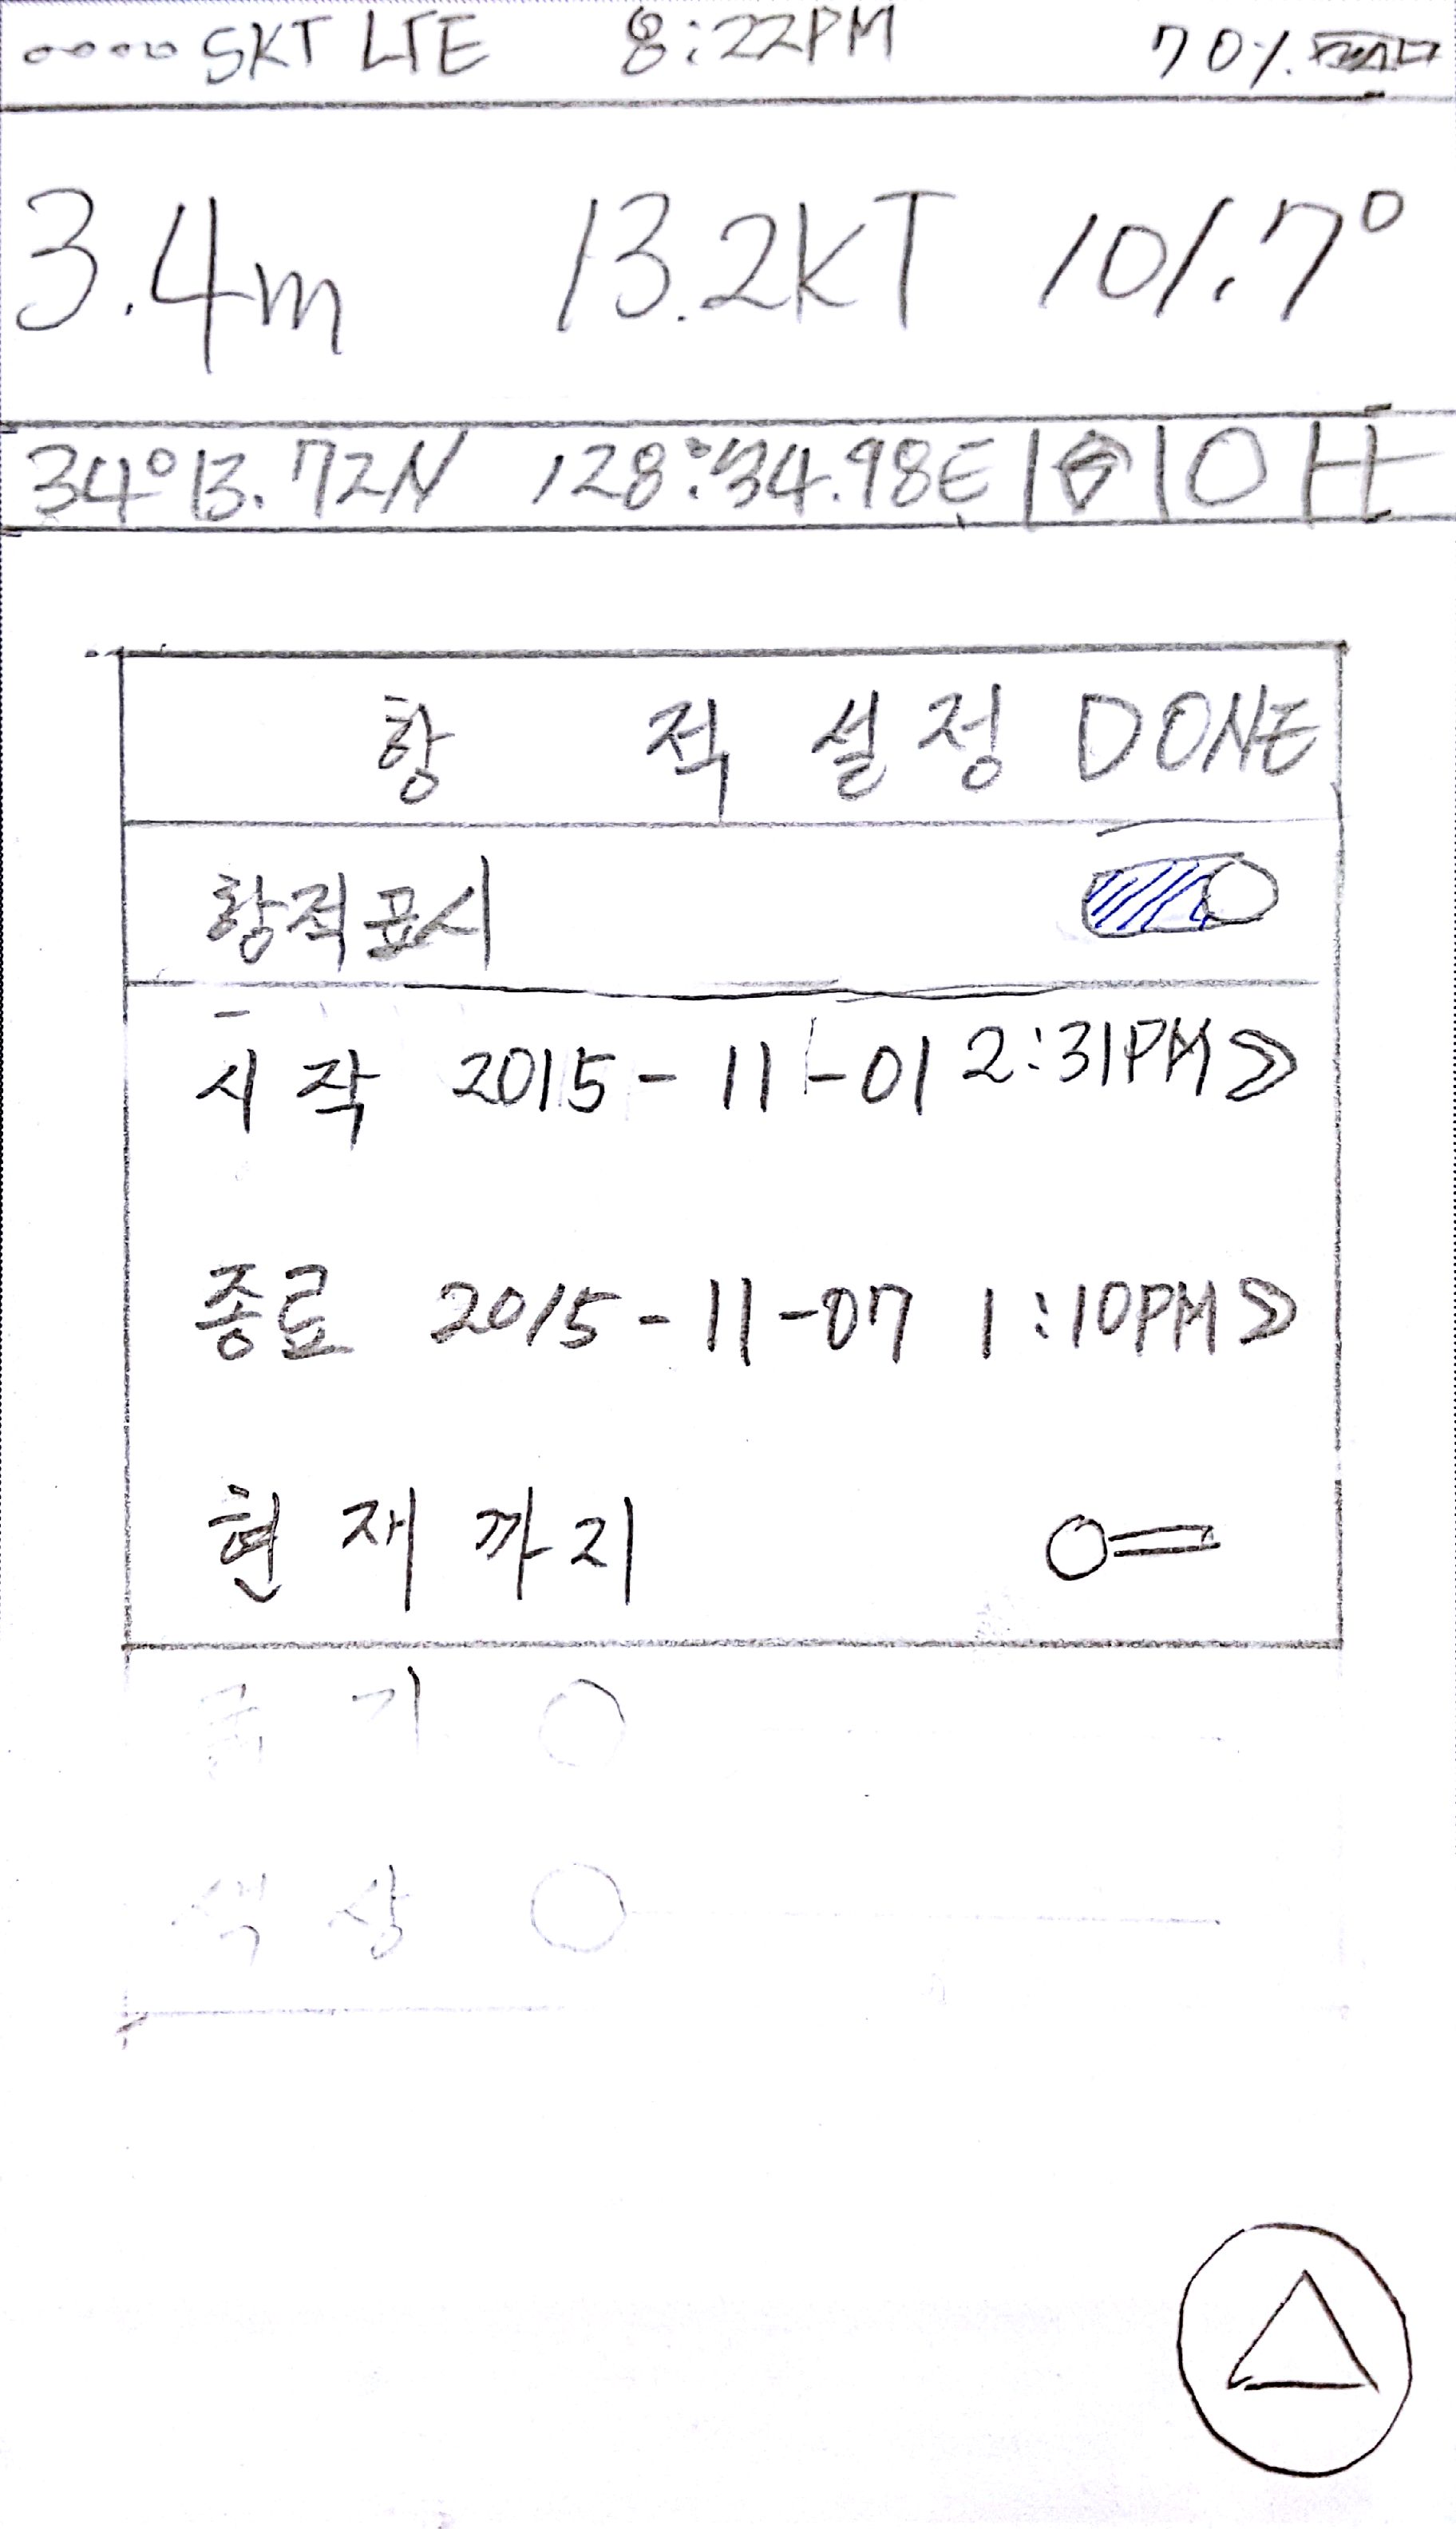 SKT LTE 8:22PM 70%
3.4m 13.2KT 101.7°
34°13.72N 128°34.98E
항 적 설 정 DONE
항적표시
시작 2015-11-01 2:31PM
종료 2015-11-07 1:10PM
현재까지
굵기
색상